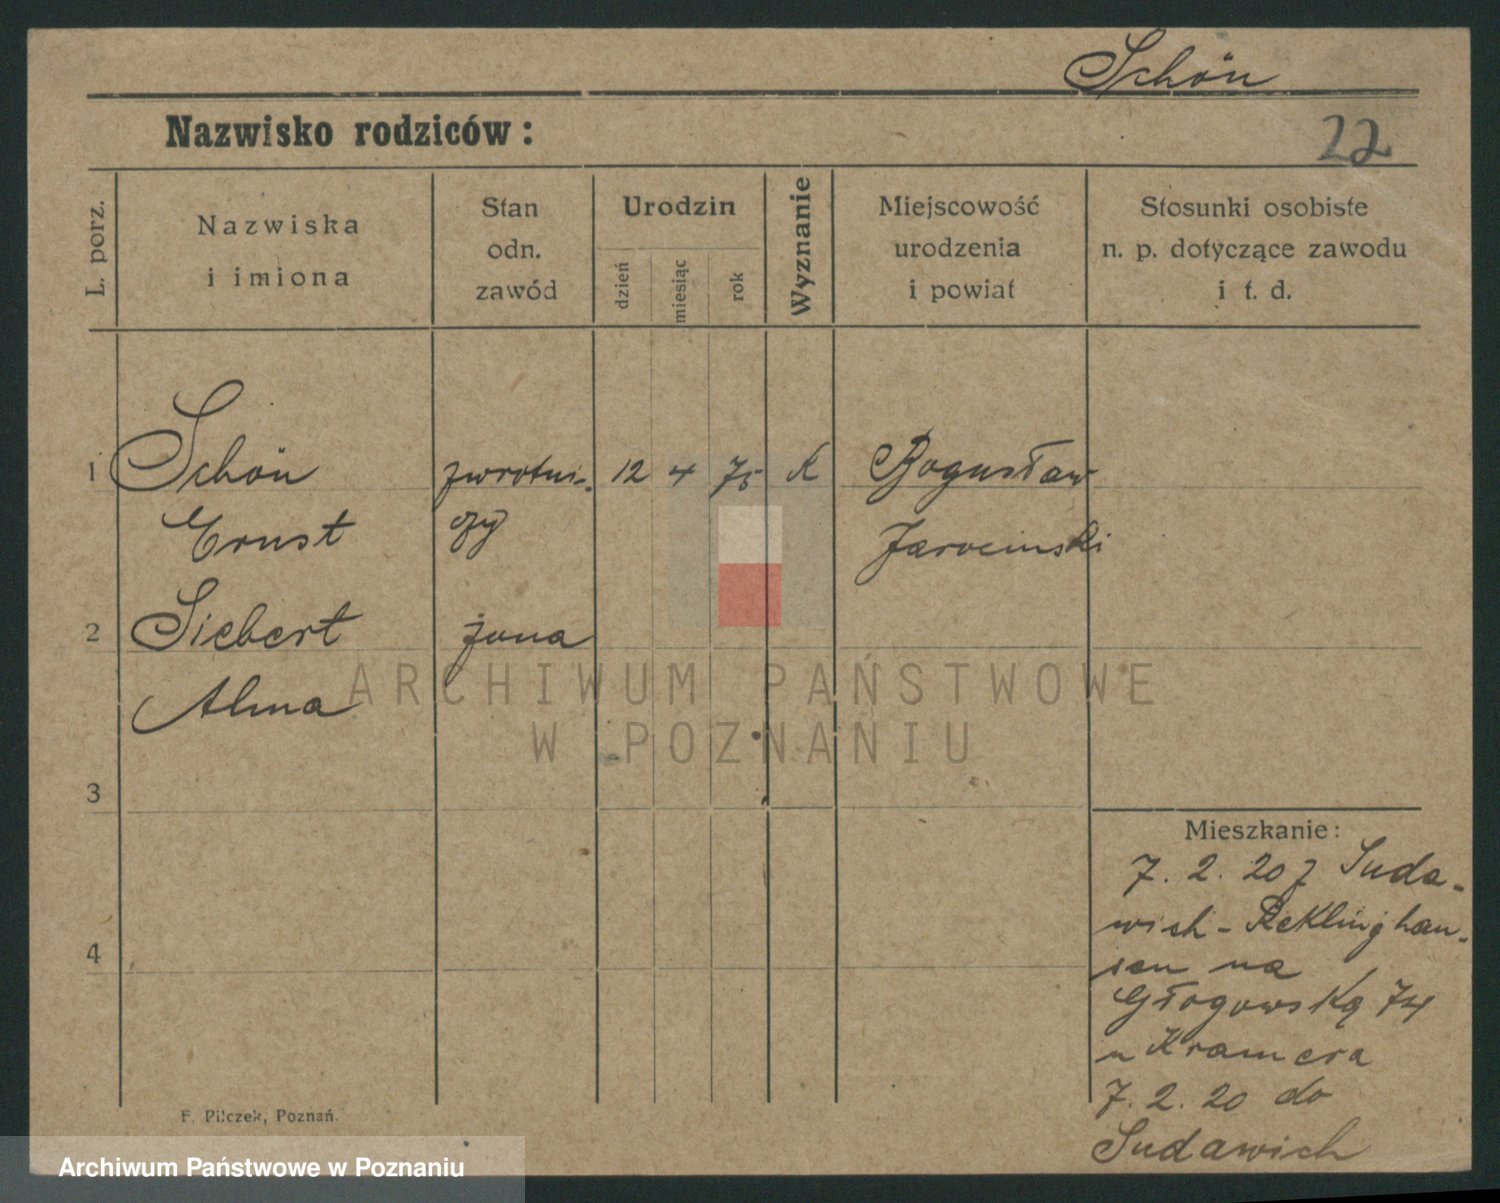 Schön
Nazwisko rodziców:
22
L. porz.
Nazwiska
i imiona
Stan
odn.
zawód
Urodzin
dzień
miesiąc
rok
Wyznanie
Miejscowość
urodzenia
i powiat
Stosunki osobiste
n. p. dotyczące zawodu
i t. d.
1 Schön zwrotni- 12 4 75 K Bogusław
Ernst czy Jarocinski
2 Siebert żona
Alma
ARCHIWUM PAŃSTWOWE
W POZNANIU
3
4
Mieszkanie:
7. 2. 20 z Suda-
wich-Reklinghau-
sen na
Głogowską 74
u Kramera
7. 2. 20 do
Sudawich
F. Pilczek, Poznań.
Archiwum Państwowe w Poznaniu